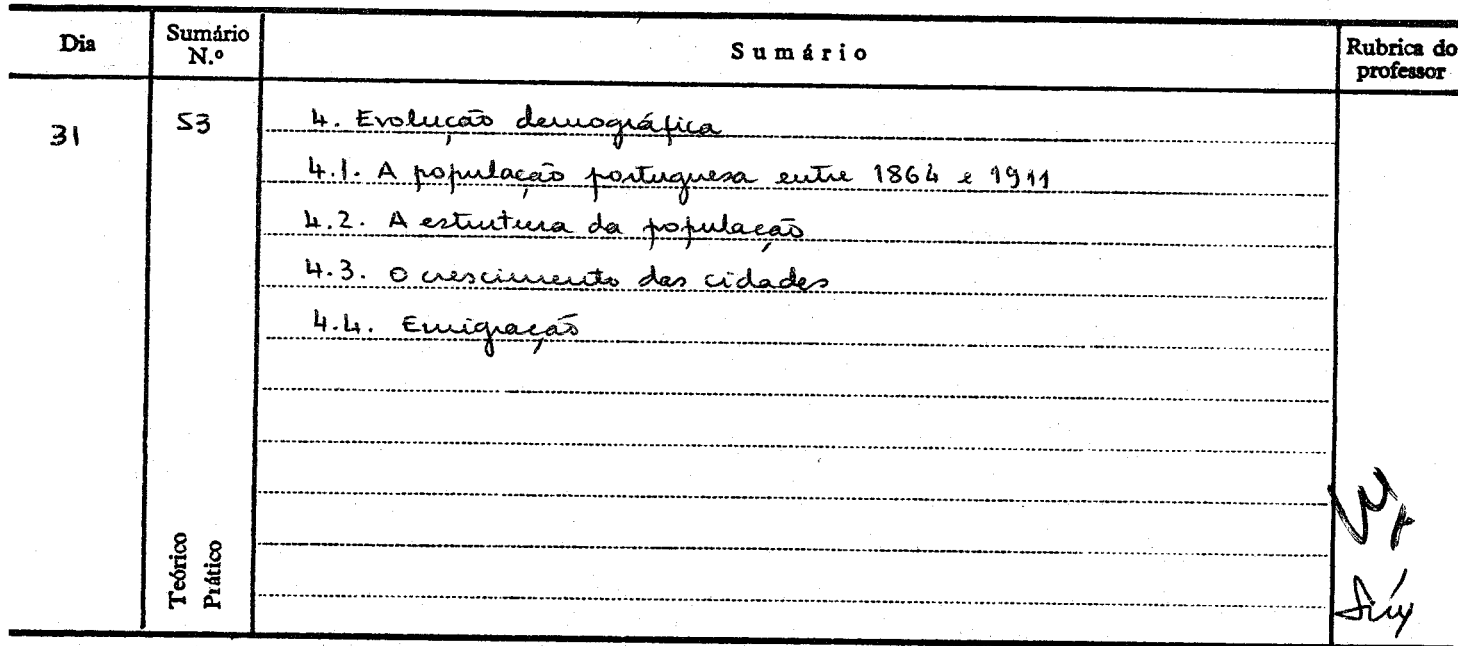 Dia Sumário N.º Sumário Rubrica do professor
31 53 4. Evolução demográfica
4.1. A população portuguesa entre 1864 e 1911
4.2. A estrutura da população
4.3. O crescimento das cidades
4.4. Emigração
Teórico
Prático